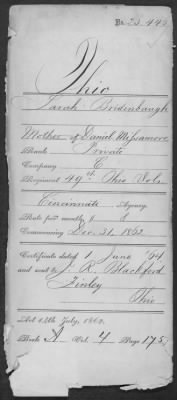 No. 23.449
Ohio
Sarah Bridenbaugh
Mother of Daniel Missamore
Rank Private
Company C
Regiment 49th Ohio Vols
Cincinnati Agency
Rate per month, $ 8
Commencing Dec. 31, 1862
Certificate dated 1 June /64
and sent to J. R. Blackford
Finley
Ohio
Act 14th July, 1862.
Book A Vol. 4 Page 175